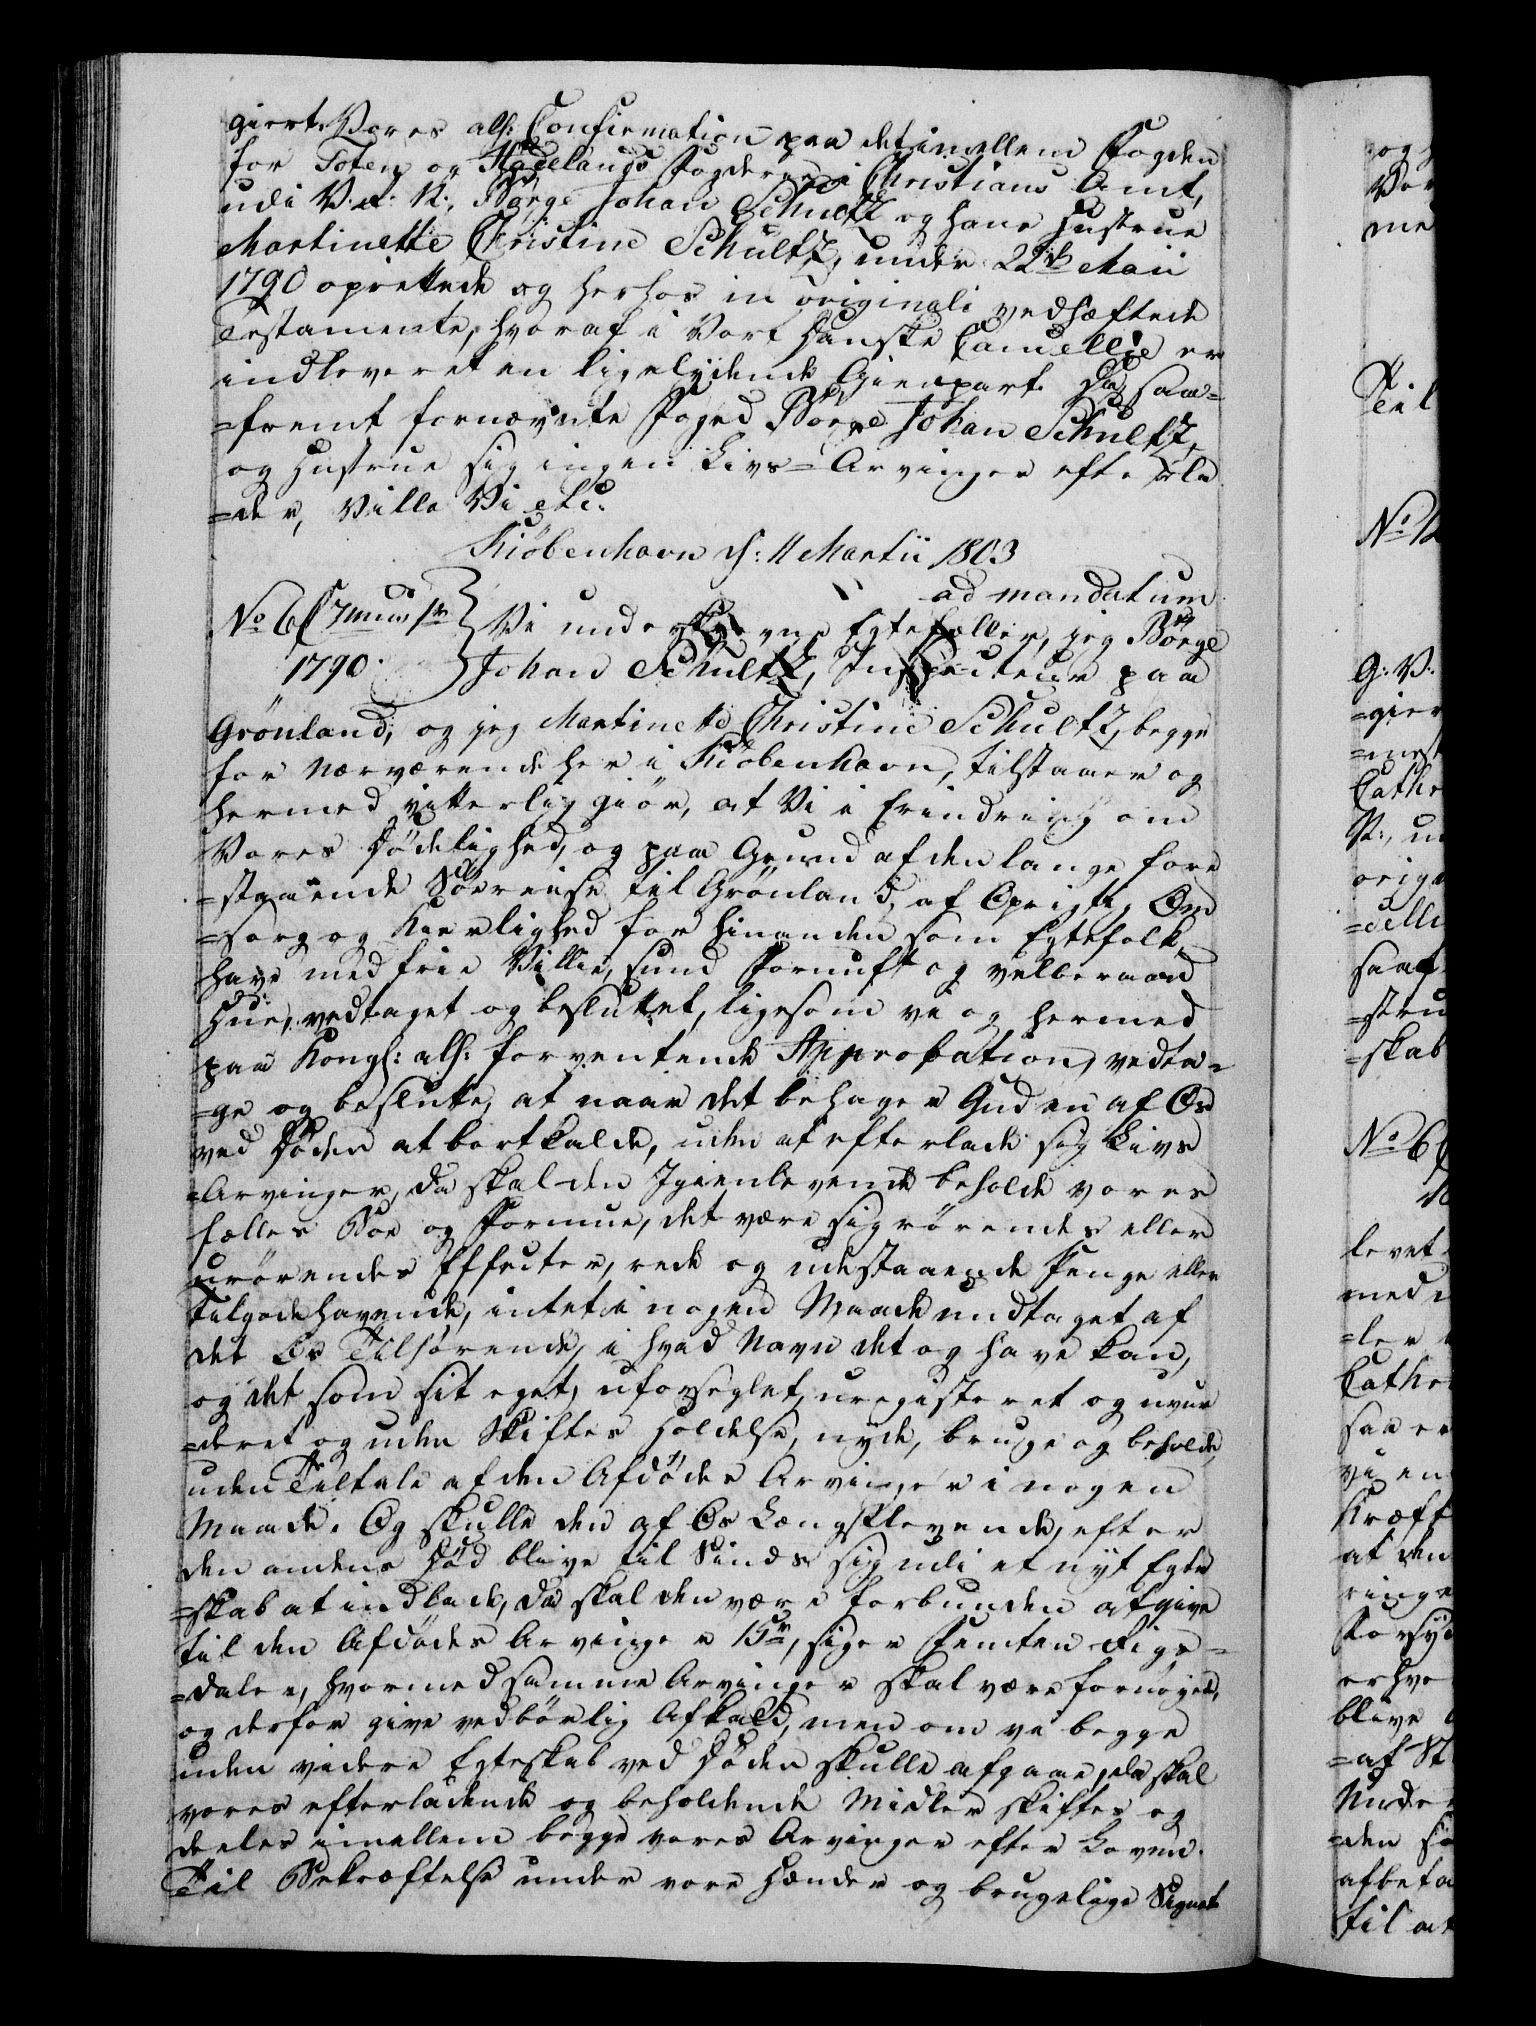 giort: Vores alh: Confirmation paa det imellem Fogden
for Toten og Hadelands Fogderie i Christians Amt,
udi V. R. N., Børge Johan Schultz og hans Hustrue
Martinette Christine Schultz, under 22de Maii
1790 oprettede og herhos in originali vedhæftede
Testamente, hvoraf i Vort Danske Cancellie er
indleveret en ligelydende Gienpart. Da, saa=
=fremt fornævnte Foged Børge Johan Schultz,
og Hustrue sig ingen Livs=Arvinger efterla
=der, Ville Vi etc:
Kiöbenhavn d: 11 Martii 1803
ad mandatum
No 6
1790.
Vi underskrevne Egtefæller, jeg Børge
Johan Schultz, Inspecteur paa
Grönland, og jeg Martinette Christine Schultz, begge
for nærværende her i Kiöbenhavn, tilstaaer og
hermed vitterliggiör, at Vi i Erindring om
Vores Dödelighed, og paa Grund af den lange fore
=staaende Söereise til Grönland, af Oprigtig Om
=sorg og Kierlighed for hinanden som Egtefolk,
have med frie Villie, sund Fornuft og velberaad
Hue, vedtaget og besluttet, ligesom vi og hermed
paa Kongl: alh: forventende Approbation, vedta=
=ge og beslutte, at naar det behager Gud en af Os
ved Döden at bortkalde, uden at efterlade sig Livs
=Arvinger, da skal den Igienlevende beholde vores
fælles Boe og Formue, det være sig rörendes eller
urörendes Effecter, rede og udestaaende Penge eller
Tilgodehavende, intet i nogen Maade undtaget af
det Os Tilhörende, i hvad Navn det og have kan,
og det som sit eget, uforseglet, uregisteret og uvur
=deret og uden Skiftes Holdelse, nyde, bruge og beholde,
uden Tiltale af den Afdödes Arvinger i nogen
Maade. Og skulle den af Os Længstlevende, efter
den andens Död blive til Sinds sig udi et nyt Egte
=skab at indlade, da skal den være forbunden at give
til den Afdödes Arvinger 15 rd, siger Femten Rigs=
=daler, hvormed samme Arvinger skal være fornøyed,
og derfor give vedbörlig Afkald, men om vi begge
uden videre Egteskab ved Döden skulle afgaae, da skal
vores efterladende og beholdende Midler skiftes og
deeles imellem begge vores Arvinger efter Loven.
Til Bekræftelse under vore Hænder og brugelige Signet